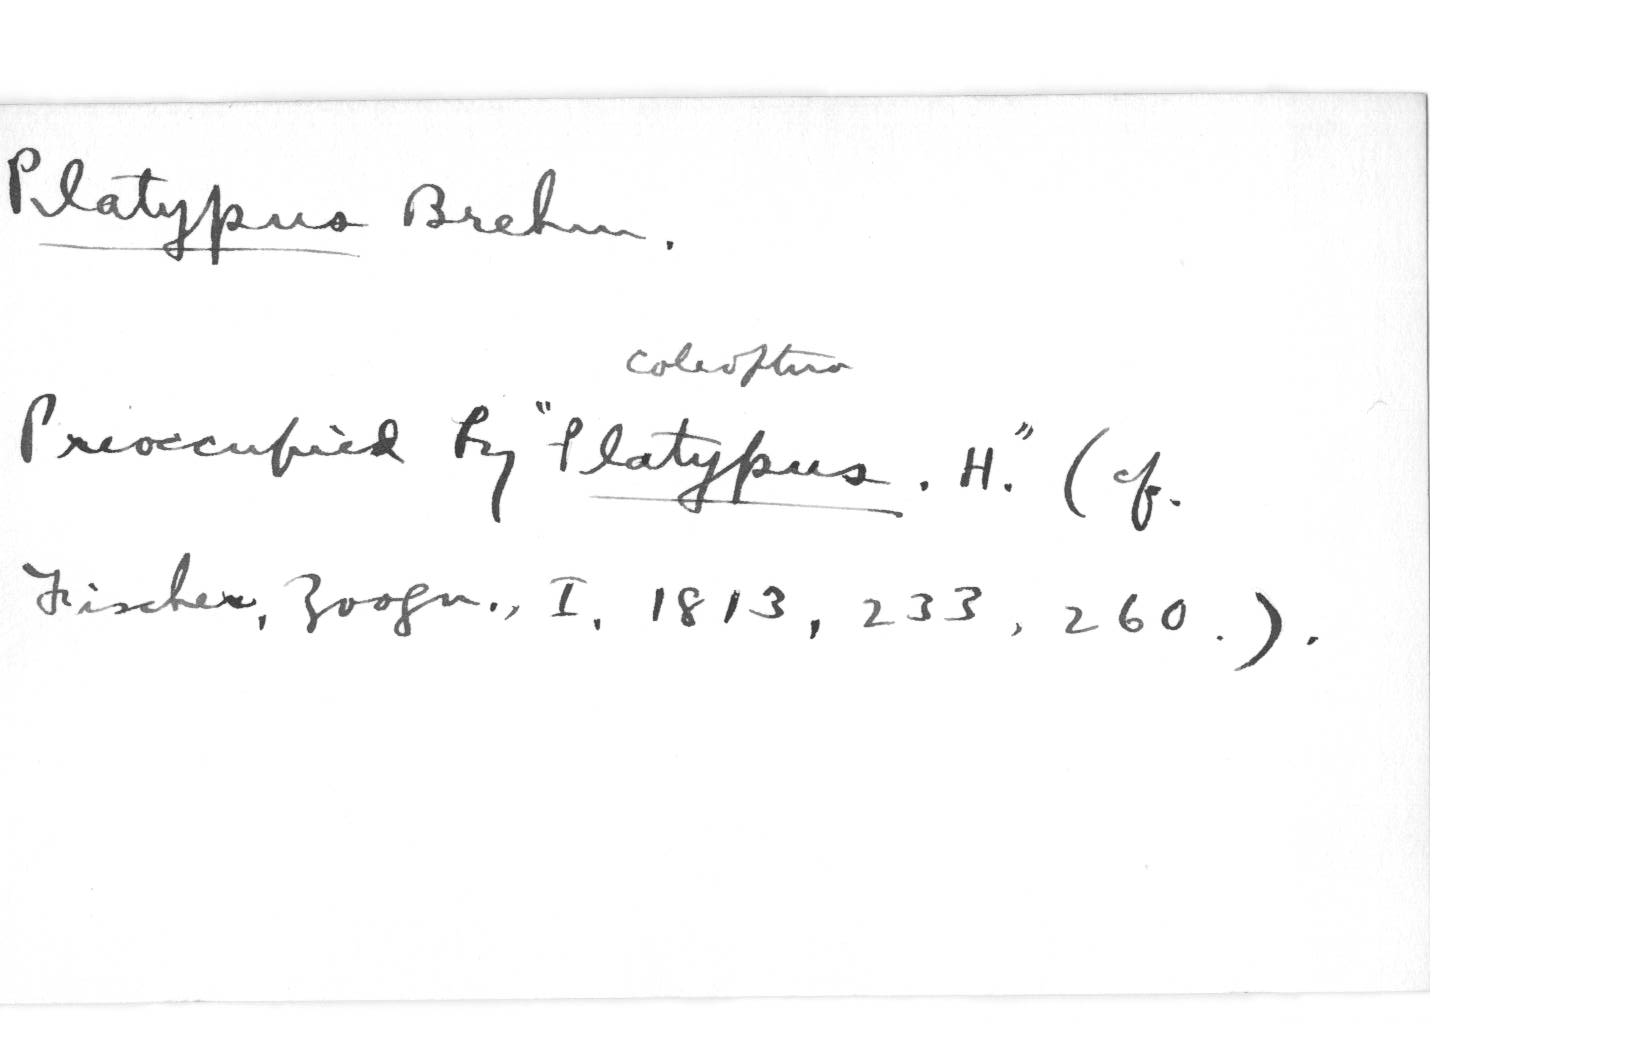 Platypus Brehm.
Coleoptera
Preoccupied by "Platypus. H." (cf.
Fischer, Zoogn., I, 1813, 233, 260.).